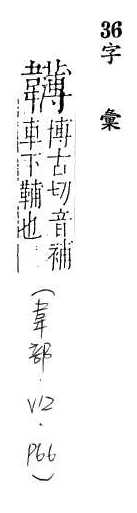 36
字彙
博古切音補
車下也
(韋部．V12．P66)